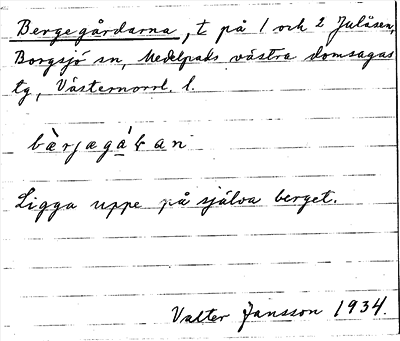 Bergegårdarna, t på 1 och 2 Julåsen,
Borgsjö sn, Medelpads västra domsagas
tg, Västernorrl. l.
bæ̀rjegàɽan
Ligga uppe på själva berget.
Valter Jansson 1934.